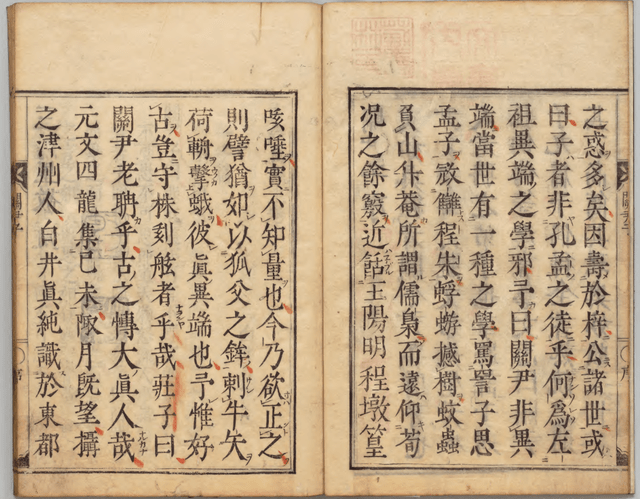 之惑多矣因壽於梓公諸世或
曰子者非孔孟之徒乎何為左
祖異端之學邪予曰關尹非異
端當世有一種之學罵詈子思
孟子　讎程朱蜉蝣撼樹蚊蟲
負山升菴所謂儒梟而遠仰荀
况之餘竅近餂王陽明程墩篁
咳唾實不知量也今乃欲正之
則譬猶如以狐父之鉾刺牛矢
荷　擊蛾彼眞異端也予惟好
古豈守株刻舷者乎哉莊子曰
關尹老聃乎古之慱大眞人哉
元文四龍集己未陬月既望攝
之津州人白井眞純識於東都